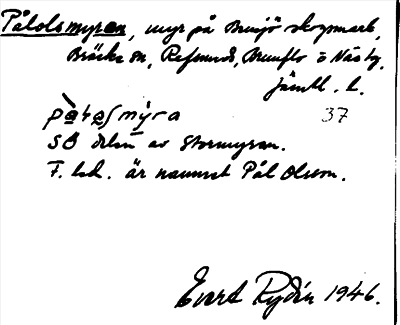 Pålolsmyran, myr på Bensjö skogsmark,
Bräcke sn, Refsunds, Brunflo o Näs tg,
Jämtl. l.
37
SÖ delen av Stormyran.
F. led. är namnet Pål Olsson.
Evert Rydén 1946.